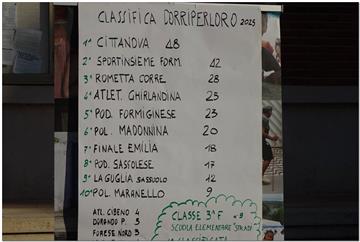 CLASSIFICA CORRIPERLORO 2025
1ª CITTANOVA 48
2ª SPORTINSIEME FORM. 42
3ª ROMETTA CORRE. 28
4ª ATLET. GHIRLANDINA 25
5ª POD. FORMIGINESE 23
6ª POL. MADONNINA 20
7ª FINALE EMILIA 18
8ª POD. SASSOLESE 17
9ª LA GUGLIA SASSUOLO 12
10ª POL. MARANELLO 9
ATL. CIBENO 4
DURONDO P. 3
FORESE NORD 3
CLASSE 3ª F n° 9
SCUOLA ELEMENTARE